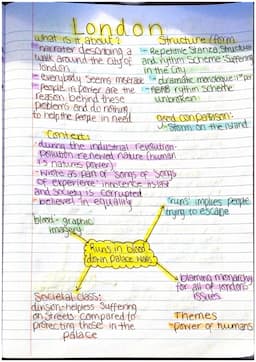 London
what is it about?
narrator describing a
walk around the city of
london
everybody seems miserable
people in power are the
reason behind these
problems and do nothing
to help the people in need
Structure/form
Repetitive Stanza Structure
and rhythm scheme suffering
in the city
dramatic monologue
rhythm scheme
unbroken
good comparison:
Storm on the island
Context:
during the industrial revolution
pollution removed nature (human
vs natures power)
wrote as part of songs of
of experience innocence is lost
and society is corrupted
believed in equality
blood - graphic
imagery
'runs' implies people
trying to escape
'Runs in blood
down Palace walls'
blaming monarchy
for all of londons
issues
Societal class:
division - helpless suffering
on streets compared to
protecting those in the
palace
Themes
power of humans